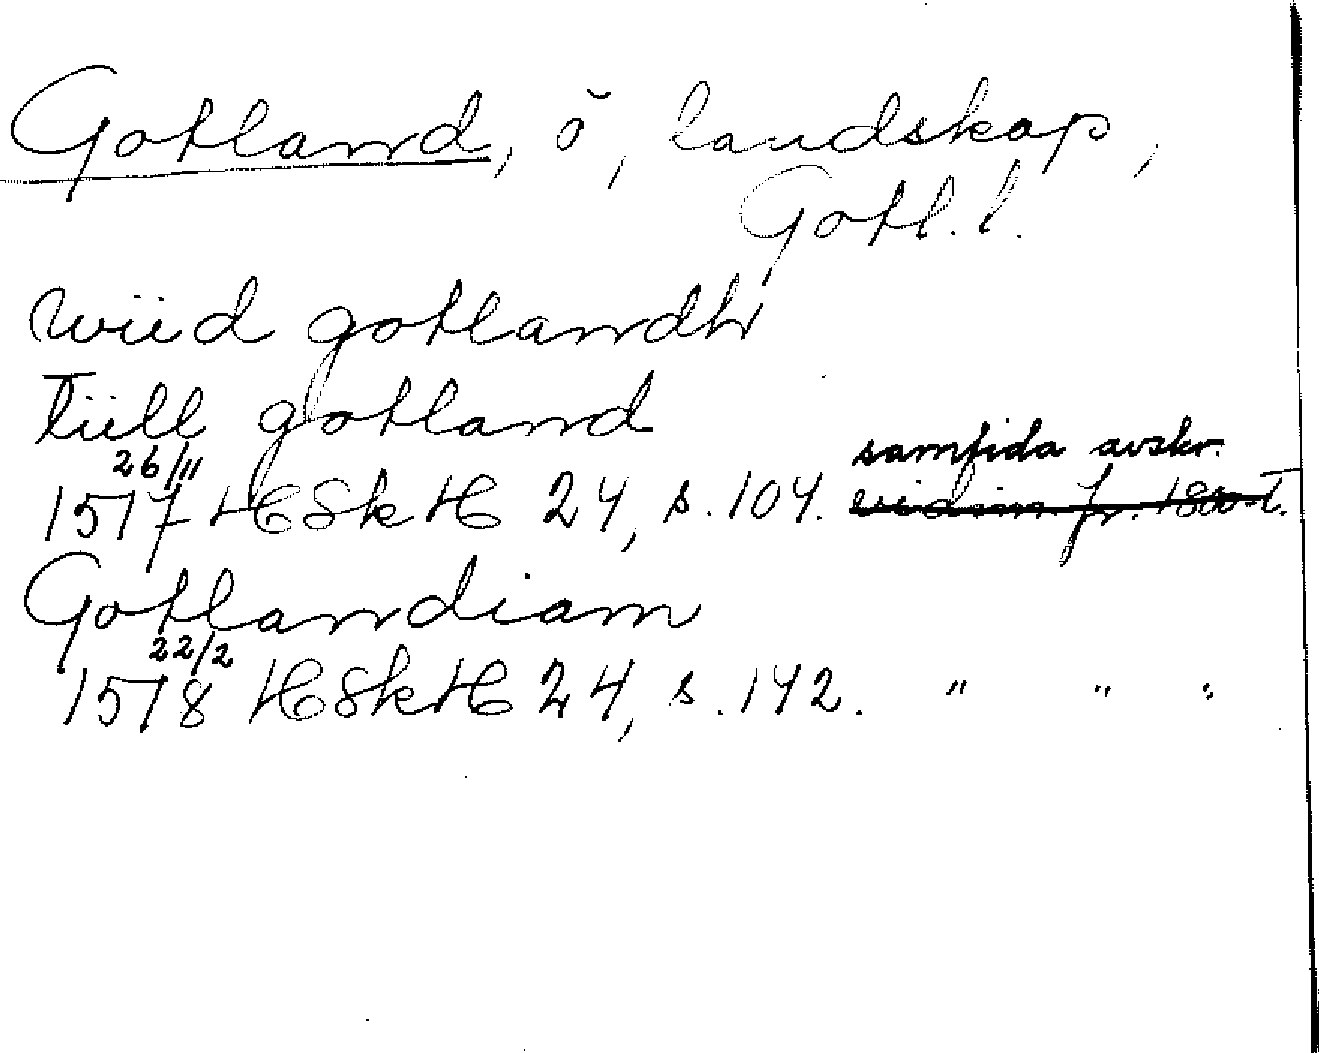 Gotland, ö, landskap,
Gotl. l.
wiid gotlandh
tiill gotland
samtida avskr.
26/11
1517 HSkH 24, s. 104. vidim. fr. 1800-t.
Gotlandiam
22/2
1518 HSkH 24, s. 142. " " "